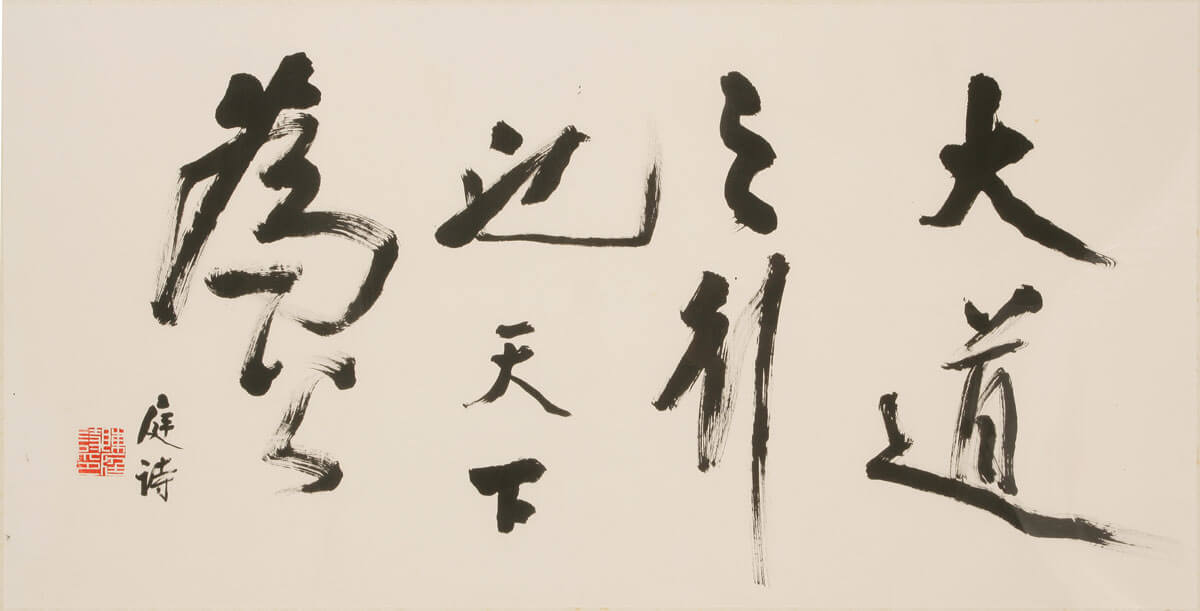 大道
之行
也天下
為公
庭詩